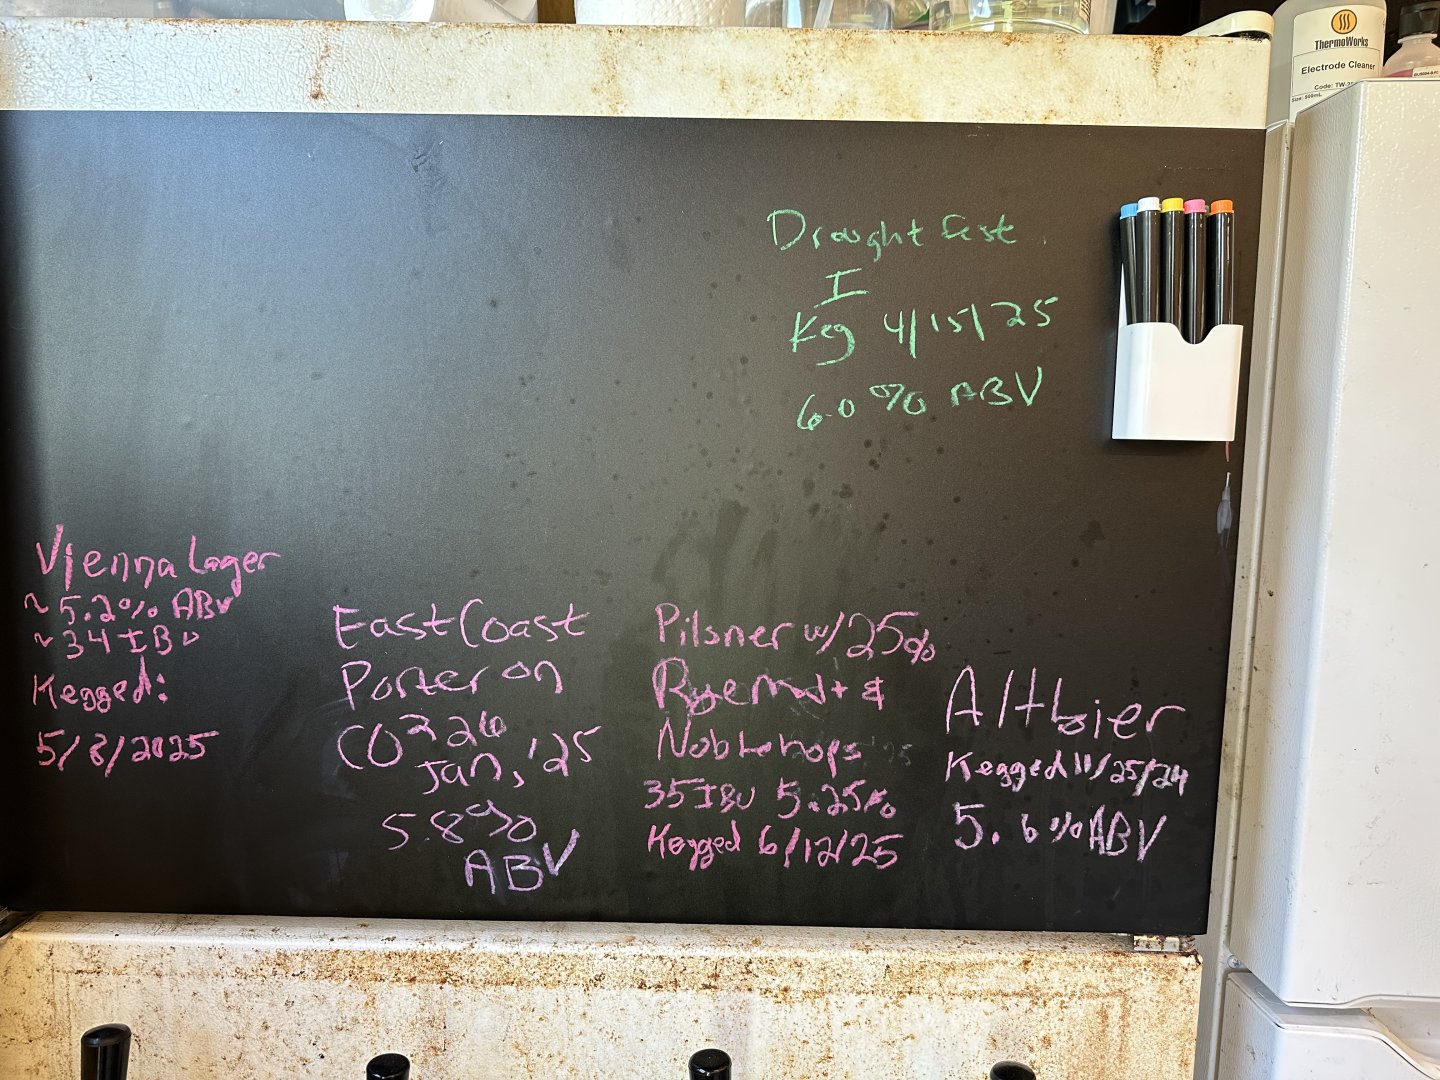 ThermoWorks
Electrode Cleaner
Code: TW-
Size: 500mL
Draught fest
I
Keg 4/15/25
6.0% ABV
Vienna Lager
~5.2% ABV
~34 IBU
Kegged:
5/8/2025
East Coast
Porter on
CO2 26
Jan, '25
5.8%
ABV
Pilsner w/25%
Rye Malt &
Noble hops
35 IBU 5.25%
Kegged 6/12/25
Altbier
Kegged 11/25/24
5.6% ABV